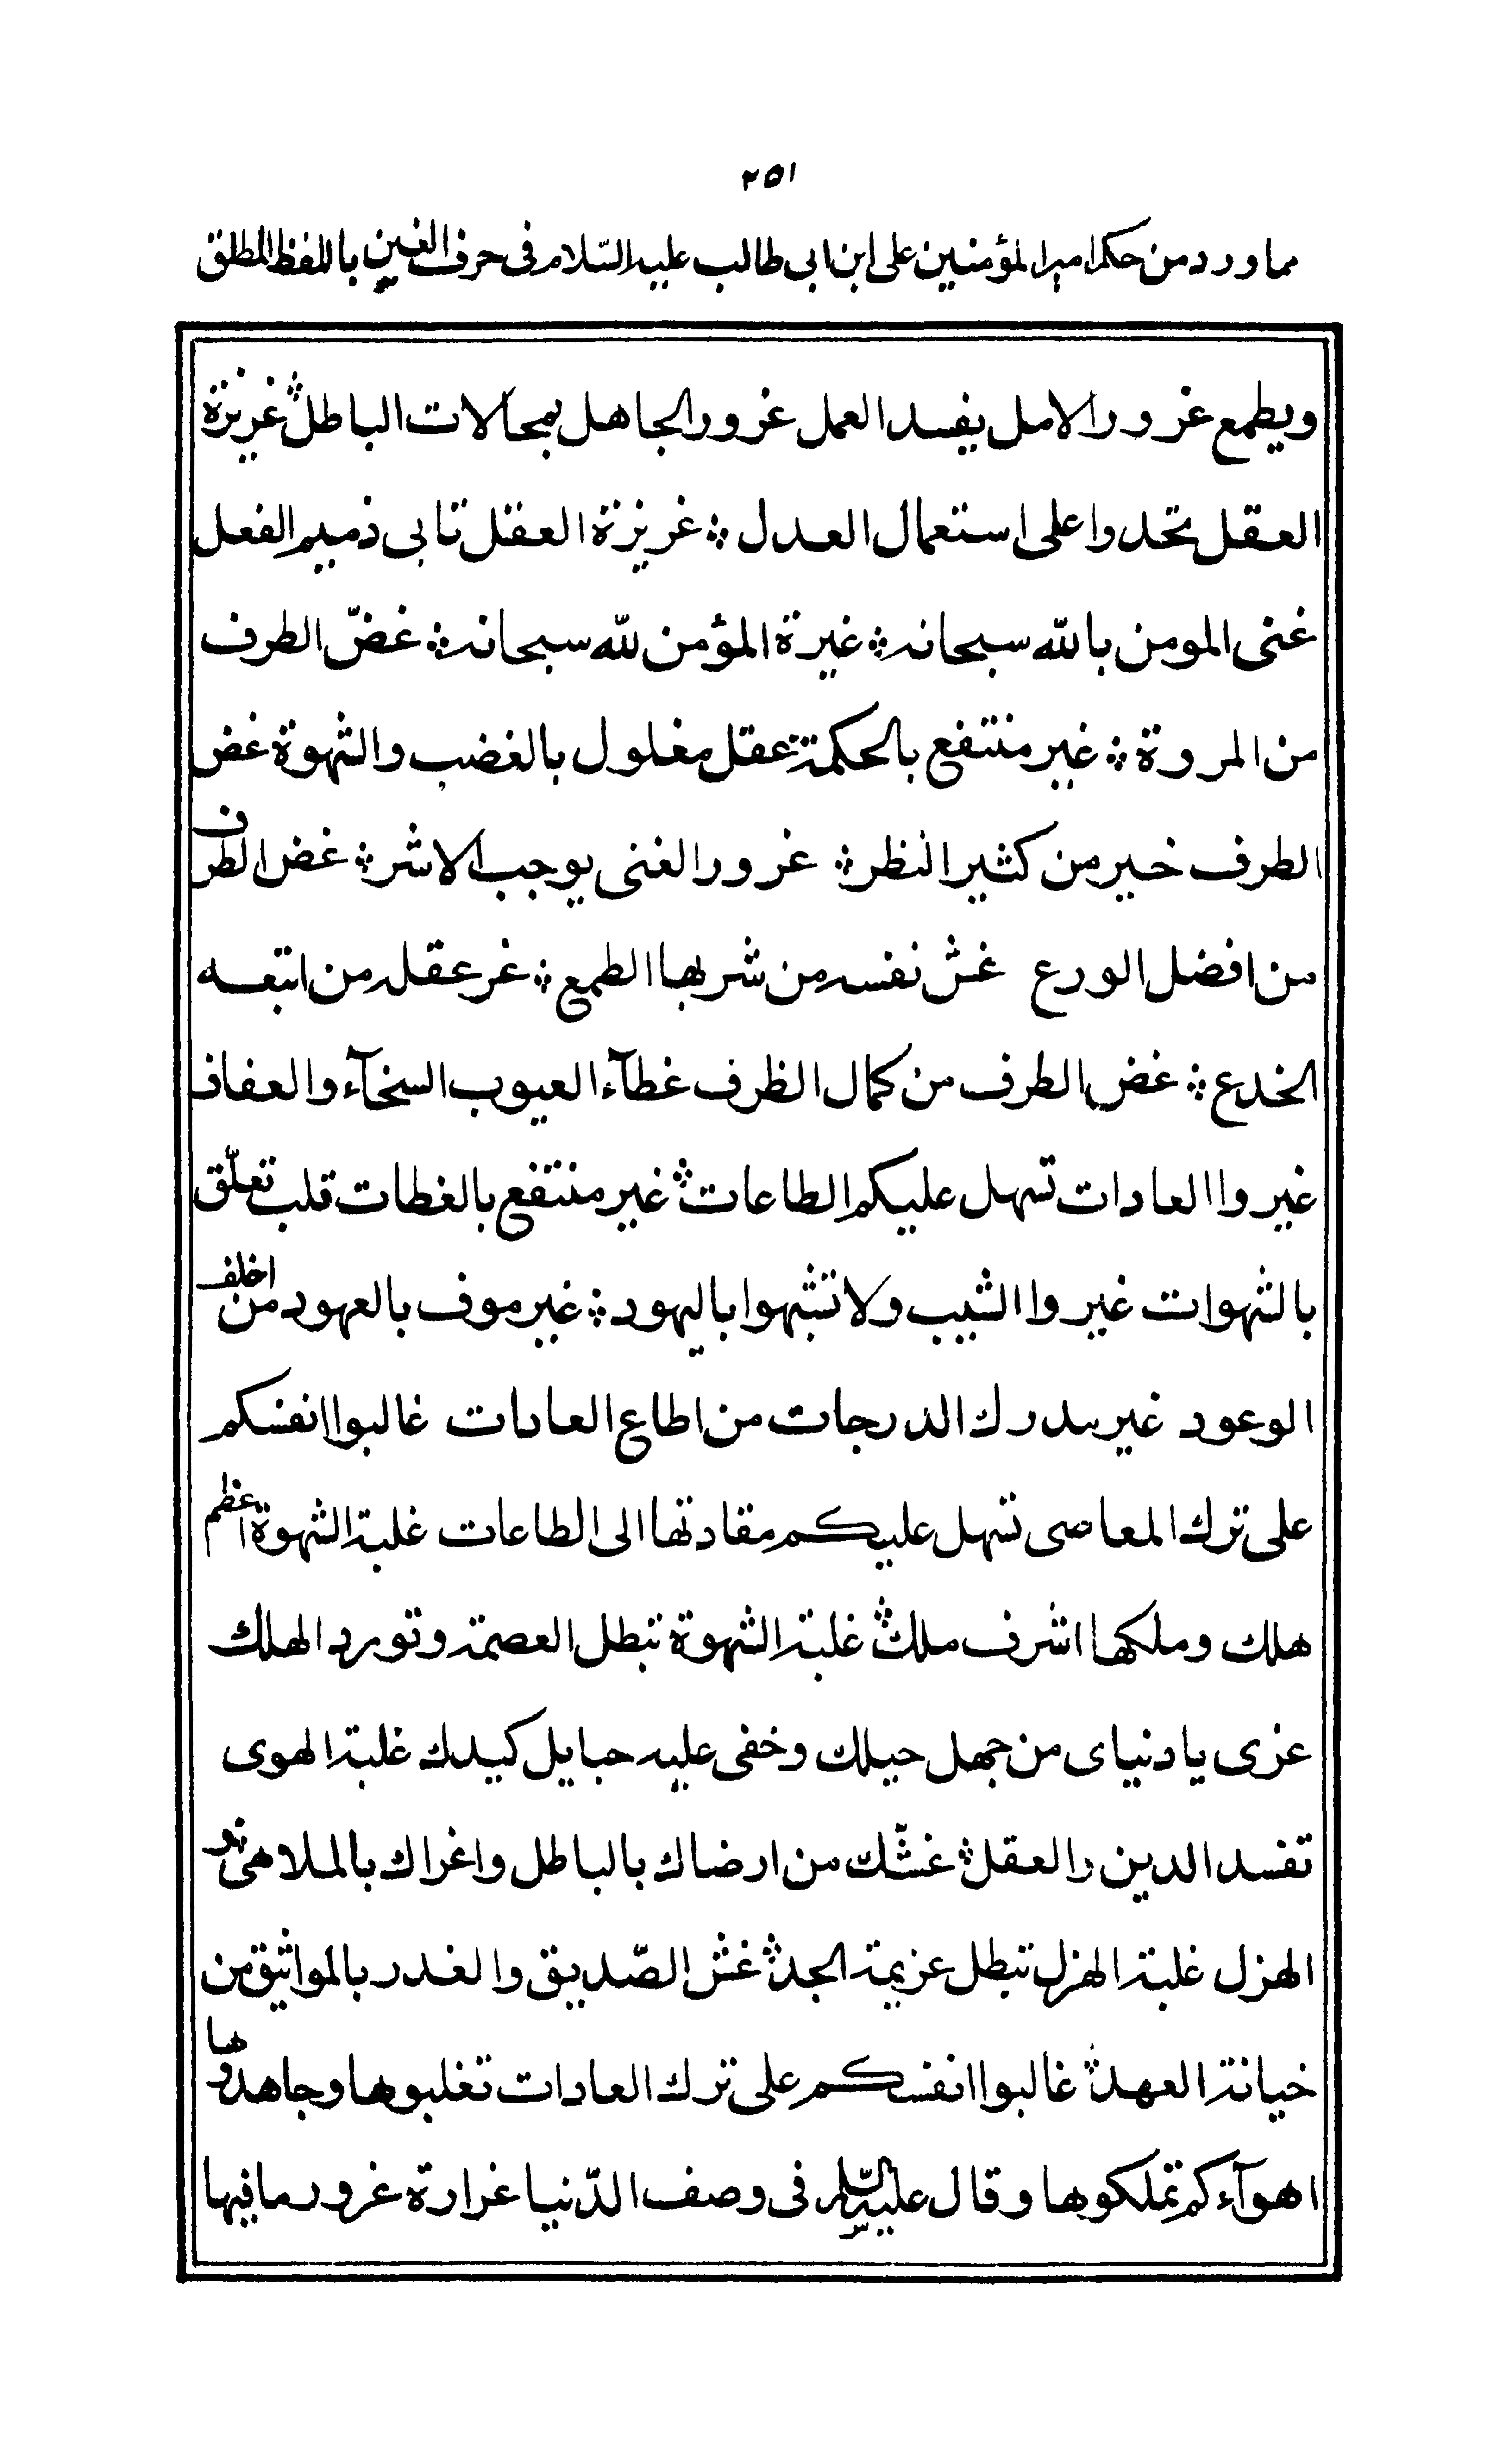 ٢٥١
مما ورد من حكم امير المؤمنين على ابن ابى طالب عليه السّلام فى حرف الغين باللفظ المطلق
ويطمع غرور الامل يفسد العمل غرور الجاهل بمحالات الباطل ؞ غريزة
العقل تحدوا على استعمال العدل ؞ غريزة العقل تابى ذميم الفعل
غنى المومن بالله سبحانه ؞ غيرة المؤمن لله سبحانه ؞ غضّ الطرف
من المروة ؞ غير منتفع بالحكمة عقل مغلول بالغضب والشهوة غض
الطرف خير من كثير النظر ؞ غرور الغنى يوجب الاشر ؞ غض الطرف
من افضل الورع غش نفسه من شربها الطمع ؞ غر عقله من اتبعه
الخدع ؞ غض الطرف من كمال الظرف غطآء العيوب السخآء والعفاف
غيروا العادات تسهل عليكم الطاعات ؞ غير منتفع بالغطات قلب تعلّق
بالشهوات غيروا الشيب ولا تشبهوا باليهود ؞ غير موف بالعهود من اخلف
الوعود غير مدرك الدرجات من اطاع العادات غالبوا انفسكم
على ترك المعاصى تسهل عليكم مقادتها الى الطاعات غلبة الشهوة اعظم
هلك وملكها اشرف ملك ؞ غلبة الشهوة تبطل العصمة وتورد الهلك
غرى يا دنياى من جهل حيلك وخفى عليه حبايل كيدك غلبة الهوى
تفسد الدين والعقل ؞ غشّك من ارضاك بالباطل واغراك بالملاهى و
الهزل غلبة الهزل تبطل عزيمة الجد ؞ غش الصّديق والغدر بالمواثيق من
خيانة العهد ؞ غالبوا انفسكم على ترك العادات تغلبوها وجاهدوها
اهوآءكم تملكوها وقال عليه السّلم فى وصف الدّنيا غرارة غرور ما فيها